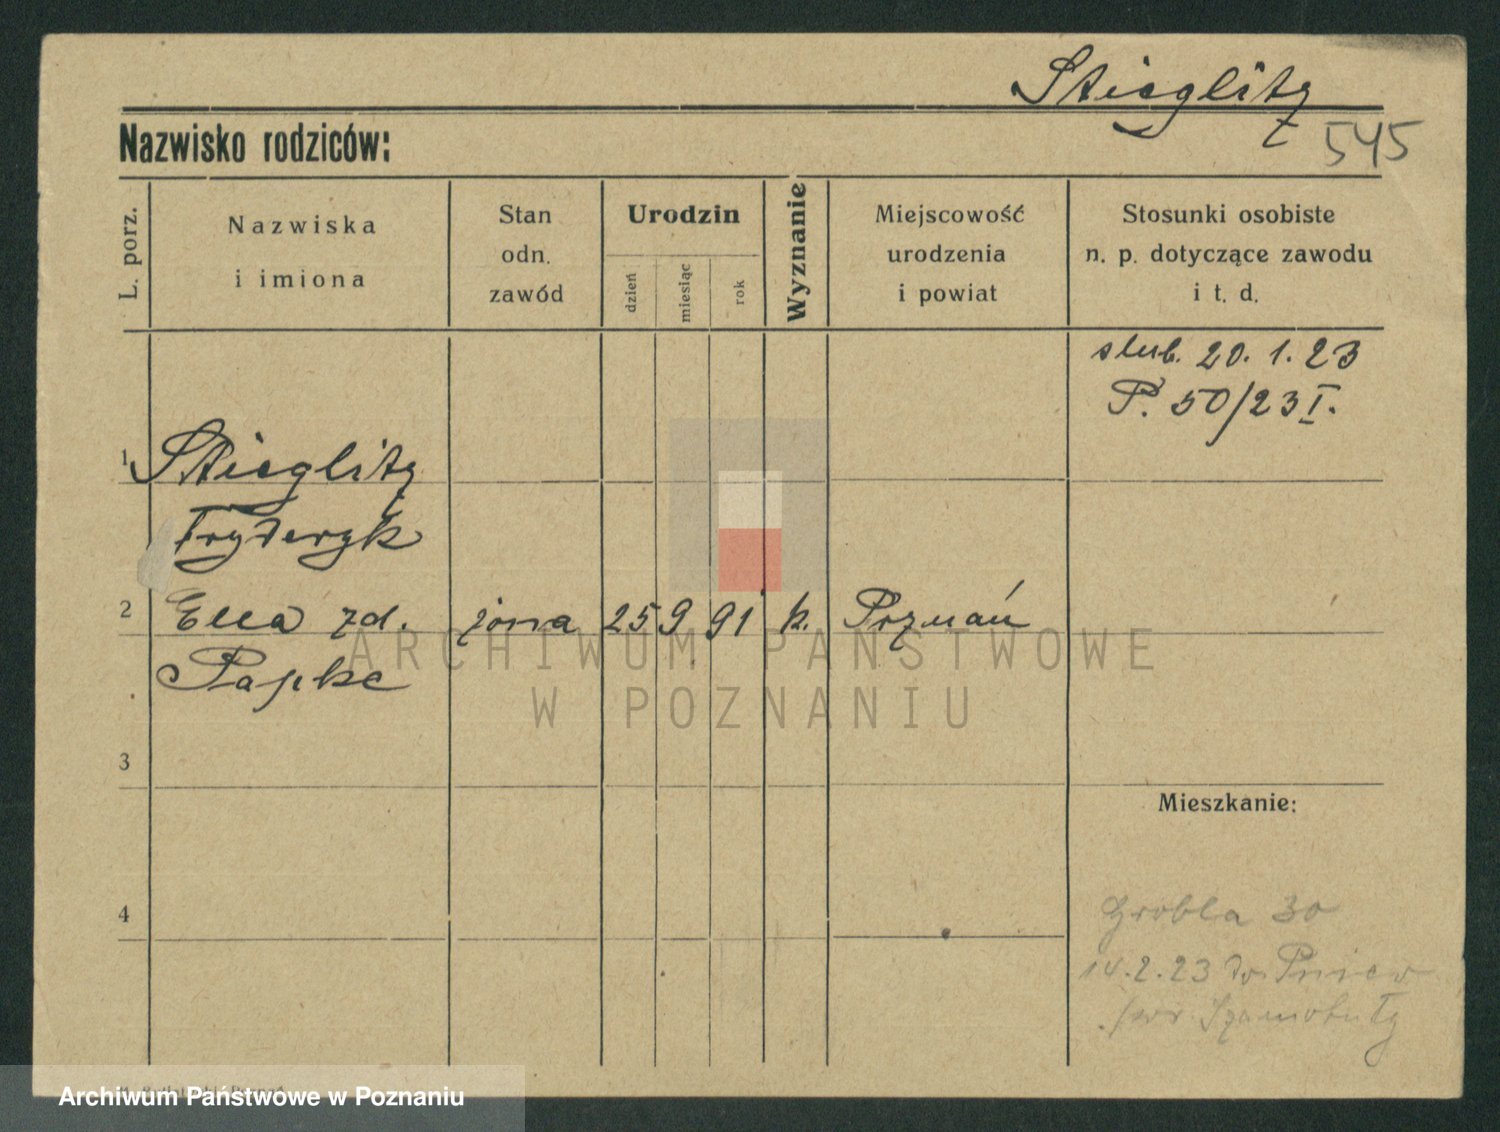 Stieglitz
Nazwisko rodziców:
545
L. porz.
Nazwiska
i imiona
Stan
odn.
zawód
Urodzin
dzień
miesiąc
rok
Wyznanie
Miejscowość
urodzenia
i powiat
Stosunki osobiste
n. p. dotyczące zawodu
i t. d.
slub. 20. 1. 23
P. 50/23 I.
1 Stieglitz
Fryderyk
2 Ella zd. żona 25 9 91 k. Poznań
Papke
ARCHIWUM PAŃSTWOWE
W POZNANIU
3
Mieszkanie:
4
Grobla 30
14.2.23 do Pniew
pow. Szamotuły
Archiwum Państwowe w Poznaniu